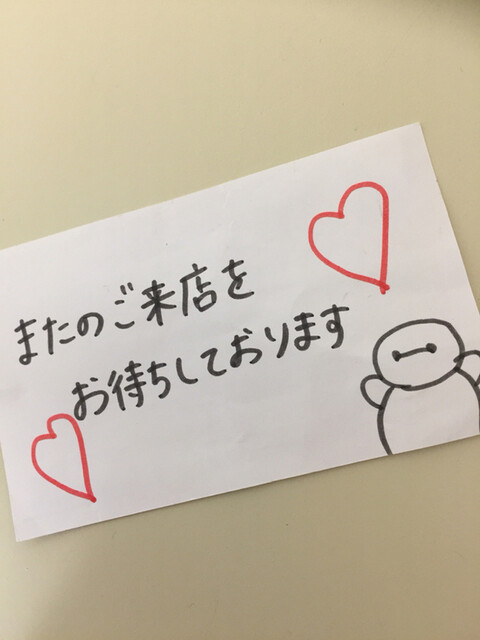 またのご来店を
お待ちしております